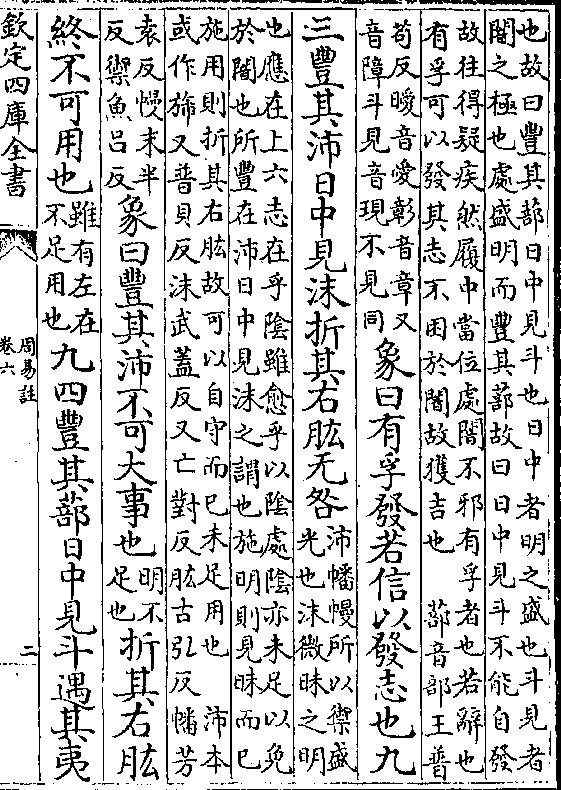 也故曰豐其蔀日中見斗也日中者明之盛也斗見者
闇之極也處盛明而豐其蔀故曰日中見斗不能自發
故往得疑疾然履中當位處闇不邪有孚者也若辭也
有孚可以發其志不困於闇故獲吉也 蔀音部王普
苟反曖音愛彰音章又
音障斗見音現不見同
象曰有孚發若信以發志也九
三豐其沛日中見沬折其右肱无咎
沛幡幔所以禦盛
光也沬微昧之明
也應在上六志在乎陰雖愈乎以陰處陰亦未足以免
於闇也所豐在沛日中見沬之謂也施明則見昧而已
施用則折其右肱故可以自守而已未足用也 沛本
或作斾又普貝反沬武蓋反又亡對反肱古弘反幡芳
袁反幔末半
反禦魚呂反
象曰豐其沛不可大事也
明不
足也
折其右肱
終不可用也
雖有左在
不足用也
九四豐其蔀日中見斗遇其夷
欽定四庫全書
周易註
卷六
二